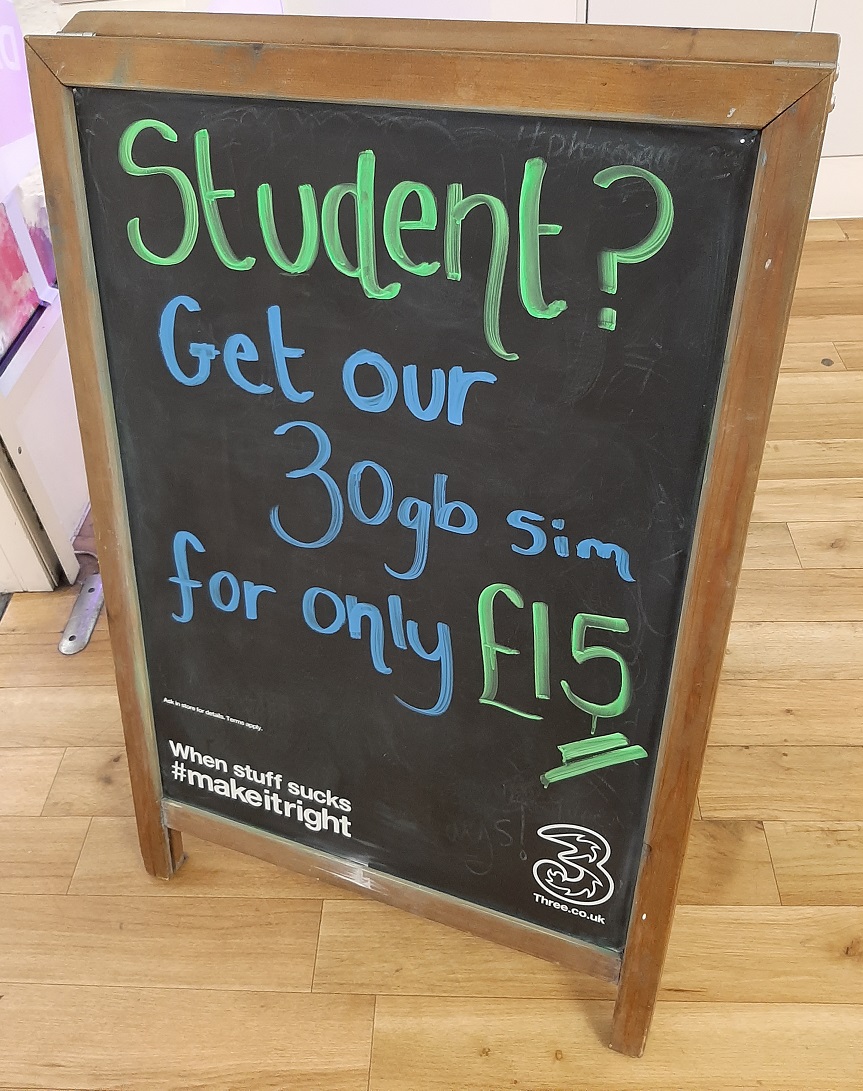 Student?
Get our
30gb sim
for only £15
Ask in store for details. Terms apply.
When stuff sucks
#makeitright
3
Three.co.uk